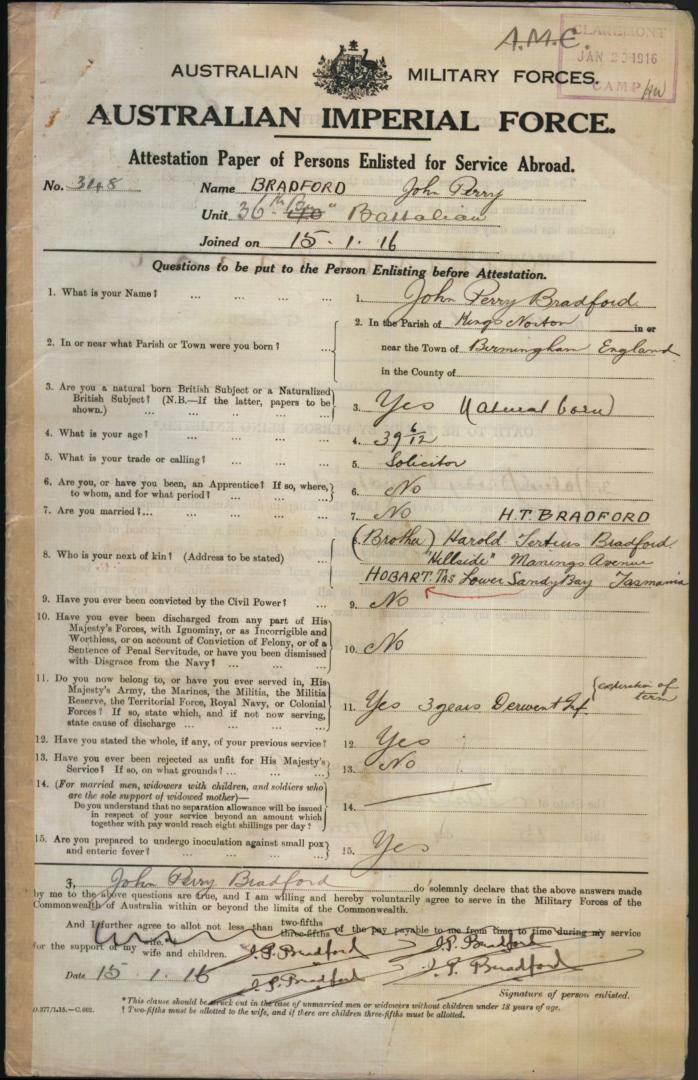 A.M.C.
CLAREMONT
JAN 23 1916
CAMP
AUSTRALIAN MILITARY FORCES.
AUSTRALIAN IMPERIAL FORCE.
Attestation Paper of Persons Enlisted for Service Abroad.
No. 348 Name BRADFORD John Perry
Unit 36th Battalian
Joined on 15.1.16
Questions to be put to the Person Enlisting before Attestation.
1. What is your Name? ... ... ... ... 1. John Perry Bradford
2. In or near what Parish or Town were you born? ... 2. In the Parish of Kings Norton in or
near the Town of Birmingham England
in the County of
3. Are you a natural born British Subject or a Naturalized
British Subject? (N.B.—If the latter, papers to be
shown.) ... ... ... ... ... 3. Yes Natural born
4. What is your age? ... ... ... ... 4. 39 6/12
5. What is your trade or calling? ... ... ... 5. Solicitor
6. Are you, or have you been, an Apprentice? If so, where,
to whom, and for what period? ... ... ... 6. No
7. Are you married?... ... ... ... ... 7. No H.T. BRADFORD
8. Who is your next of kin? (Address to be stated) ... 8. (Brother) Harold Tertius Bradford
"Hillside" Manings Avenue
HOBART. TAS Lower Sandy Bay Tasmania
9. Have you ever been convicted by the Civil Power? ... 9. No
10. Have you ever been discharged from any part of His
Majesty's Forces, with Ignominy, or as Incorrigible and
Worthless, or on account of Conviction of Felony, or of a
Sentence of Penal Servitude, or have you been dismissed
with Disgrace from the Navy? ... ... ... 10. No
11. Do you now belong to, or have you ever served in, His
Majesty's Army, the Marines, the Militia, the Militia
Reserve, the Territorial Force, Royal Navy, or Colonial
Forces? If so, state which, and if not now serving,
state cause of discharge ... ... ... ... 11. Yes 3 years Derwent Inf (expiration of
term
12. Have you stated the whole, if any, of your previous service? 12. Yes
13. Have you ever been rejected as unfit for His Majesty's
Service? If so, on what grounds? ... ... ... 13. No
14. (For married men, widowers with children, and soldiers who
are the sole support of widowed mother)—
Do you understand that no separation allowance will be issued
in respect of your service beyond an amount which
together with pay would reach eight shillings per day? ... 14.
15. Are you prepared to undergo inoculation against small pox
and enteric fever? ... ... ... ... 15. Yes
I, John Perry Bradford do solemnly declare that the above answers made
by me to the above questions are true, and I am willing and hereby voluntarily agree to serve in the Military Forces of the
Commonwealth of Australia within or beyond the limits of the Commonwealth.
And I further agree to allot not less than two-fifths
three-fifths of the pay payable to me from time to time during my service
for the support of my wife.
wife and children. J. P. Bradford J. P. Bradford
Date 15.1.16 J. P. Bradford J. P. Bradford
Signature of person enlisted.
*This clause should be struck out in the case of unmarried men or widowers without children under 18 years of age.
† Two-fifths must be allotted to the wife, and if there are children three-fifths must be allotted.
D.277/1.15.—C.602.